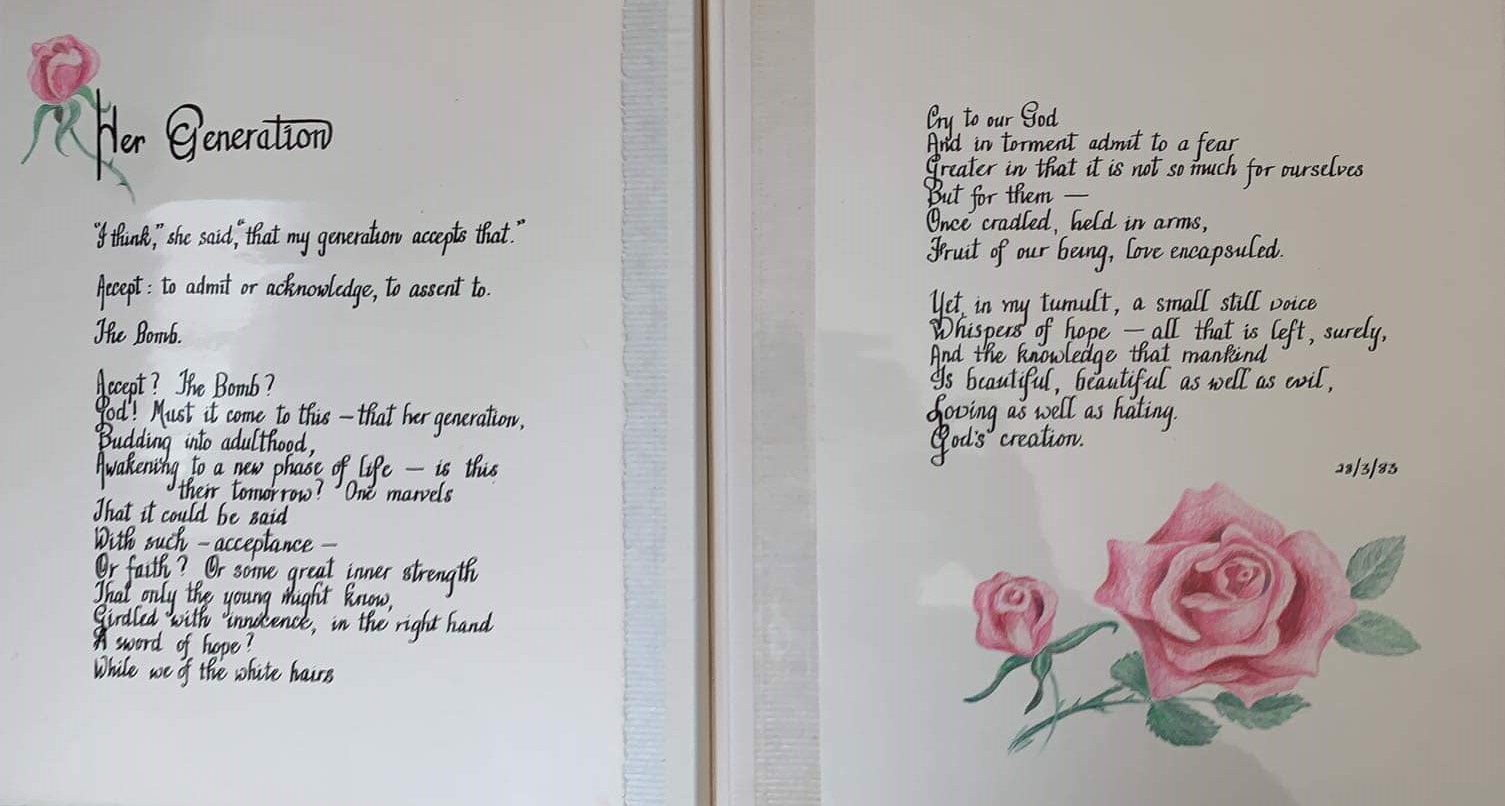 Her Generation
"I think," she said, "that my generation accepts that."
Accept: to admit or acknowledge, to assent to.
The Bomb.
Accept? The Bomb?
God! Must it come to this – that her generation,
Budding into adulthood,
Awakening to a new phase of life – is this
their tomorrow? One marvels
That it could be said
With such – acceptance –
Or faith? Or some great inner strength
That only the young might know,
Girdled with innocence, in the right hand
A sword of hope?
While we of the white hairs
Cry to our God
And in torment admit to a fear
Greater in that it is not so much for ourselves
But for them –
Once cradled, held in arms,
Fruit of our being, love encapsuled.
Yet, in my tumult, a small still voice
Whispers of hope – all that is left, surely,
And the knowledge that mankind
Is beautiful, beautiful as well as evil,
Loving as well as hating.
God's creation.
28/3/83